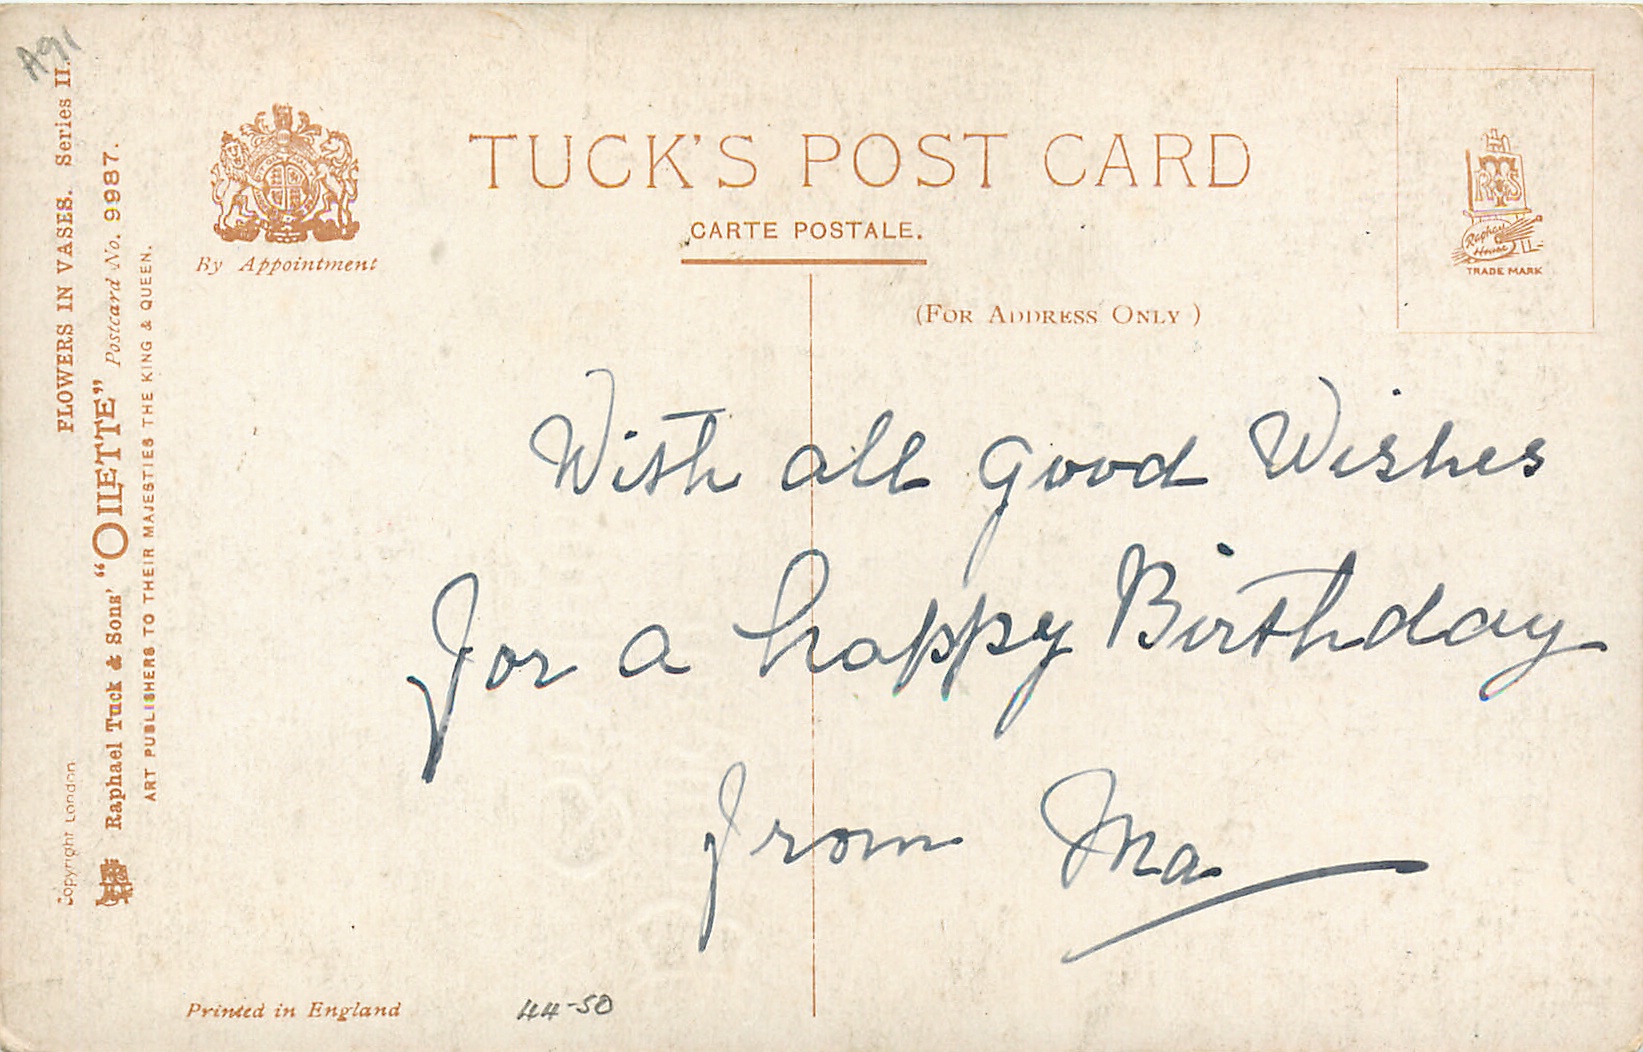 A91
FLOWERS IN VASES. Series II.
Raphael Tuck & Sons' "OILETTE" Postcard No. 9987.
ART PUBLISHERS TO THEIR MAJESTIES THE KING & QUEEN.
Copyright London
By Appointment
TUCK'S POST CARD
CARTE POSTALE.
(FOR ADDRESS ONLY)
RTS
Raphael
House
TRADE MARK
With all good Wishes
for a happy Birthday
from Ma
Printed in England
44-50